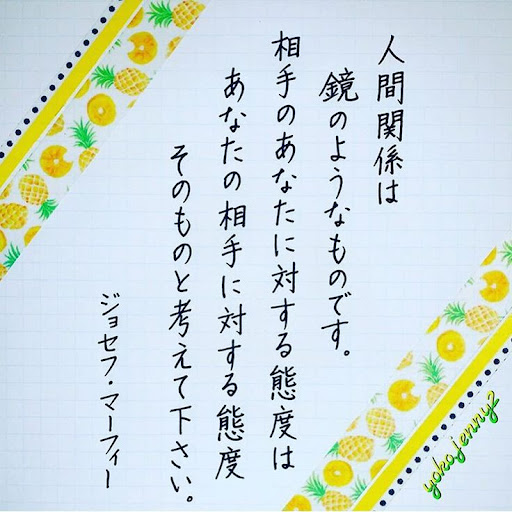 人間関係は
鏡のようなものです。
相手のあなたに対する態度は
あなたの相手に対する態度
そのものと考えて下さい。
ジョセフ・マーフィー
yokojenny2